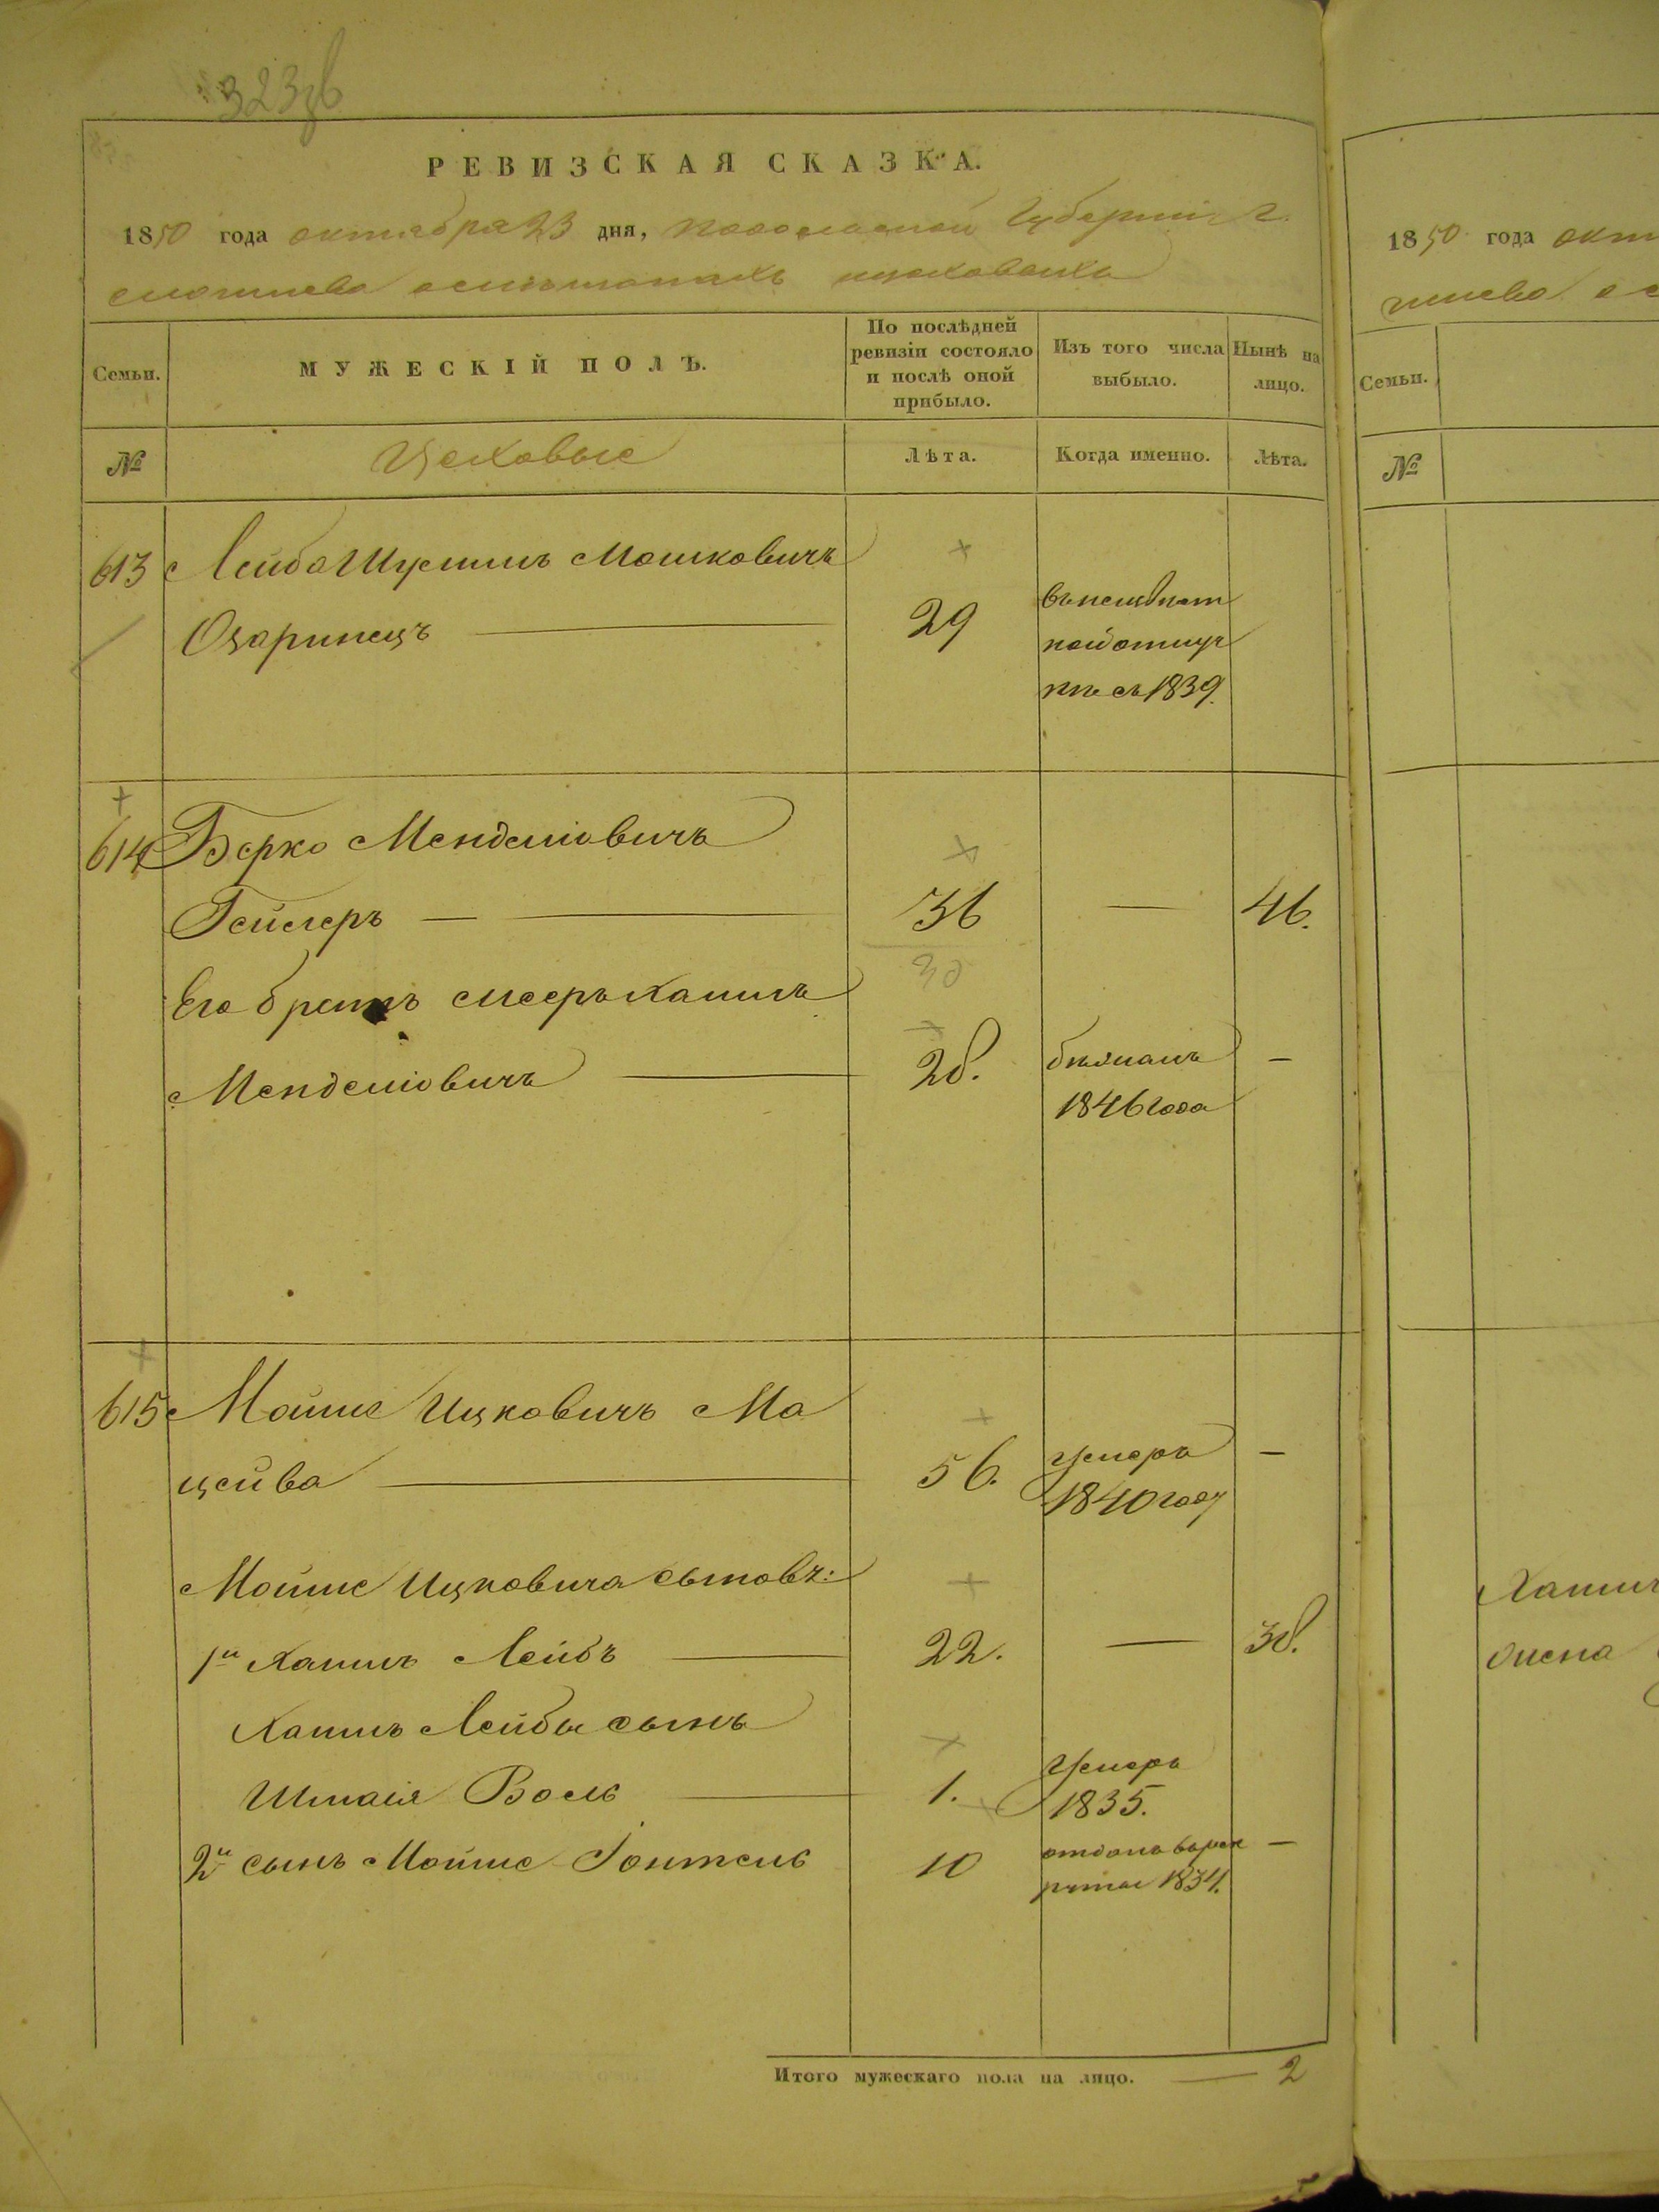 323
РЕВИЗСКАЯ СКАЗКА.
1850 года октября 23 дня, Подольской Губернии г.
могилева цеховыхъ
Семьи.
МУЖЕСКІЙ ПОЛЪ.
По послѣдней ревизіи состояло и послѣ оной прибыло.
Изъ того числа выбыло.
Нынѣ на лицо.
№
Цеховые
Лѣта.
Когда именно.
Лѣта.
613 Лейба Шулимъ Мошковичъ
Озаринецъ 29
съ 1839.
614 Берко Менделіовичъ
Гейлеръ — 36 — 46.
Его братъ Мееръ Хаимъ
Менделіовичъ 28. —
1846 года
615 Мойше Ицковичъ Ма
цейва 56. умеръ —
1840 году
Мойше Ицковича сыновъ:
1й Хаимъ Лейбъ 22. — 38.
Хаимъ Лейбы сынъ
Шмаія Волъ 1. Умеръ
1835.
2й сынъ Мойше Іонтель 10 отданъ въ рек —
руты 1834.
Итого мужескаго пола на лицо. — 2
1850 года окт
Семьи.
№
Хаимъ